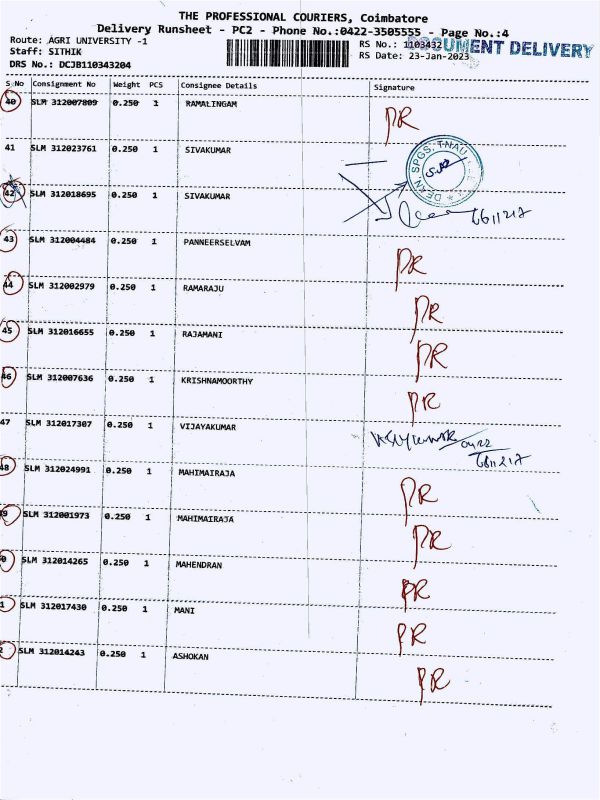 THE PROFESSIONAL COURIERS, Coimbatore
Delivery Runsheet - PC2 - Phone No.:0422-3505555 - Page No.:4
Route: AGRI UNIVERSITY -1
RS No.: 1103432
DOCUMENT DELIVERY
Staff: SITHIK
RS Date: 23-Jan-2023
DRS No.: DCJB110343204
S No Consignment No Weight PCS Consignee Details Signature
40 SLM 312007809 0.250 1 RAMALINGAM PR
41 SLM 312023761 0.250 1 SIVAKUMAR
DEAN SPGS. TNAU
42 SLM 312018695 0.250 1 SIVAKUMAR
6611217
43 SLM 312004484 0.250 1 PANNEERSELVAM PR
44 SLM 312002979 0.250 1 RAMARAJU PR
45 SLM 312016655 0.250 1 RAJAMANI PR
46 SLM 312007636 0.250 1 KRISHNAMOORTHY PR
47 SLM 312017307 0.250 1 VIJAYAKUMAR
0422
6611217
48 SLM 312024991 0.250 1 MAHIMAIRAJA PR
9 SLM 312001973 0.250 1 MAHIMAIRAJA PR
0 SLM 312014265 0.250 1 MAHENDRAN PR
1 SLM 312017430 0.250 1 MANI PR
2 SLM 312014243 0.250 1 ASHOKAN PR